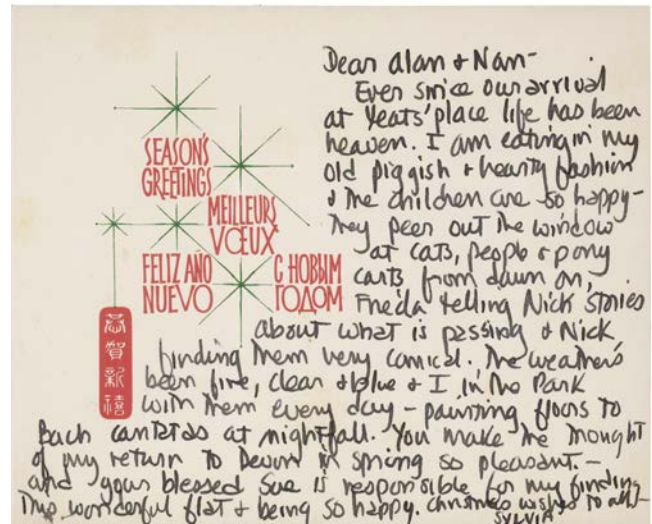 SEASON'S
GREETINGS
MEILLEURS
VŒUX
FELIZ AÑO
NUEVO
С НОВЫМ
ГОДОМ
恭賀新禧
Dear Alan & Nan-
Ever since our arrival
at Yeats' place life has been
heaven. I am eating in my
old piggish & hearty fashion
& the children are so happy-
they peer out the window
at cats, people & pony
carts from dawn on,
Frieda telling Nick stories
about what is passing & Nick
finding them very comical. The weather's
been fine, clear & blue & I in the Park
with them every day - painting floors to
Bach cantatas at nightfall. You make the thought
of my return to Devon in spring so pleasant. -
and your blessed Sue is responsible for my finding
this wonderful flat & being so happy. Christmas wishes to all-
SYLVIA